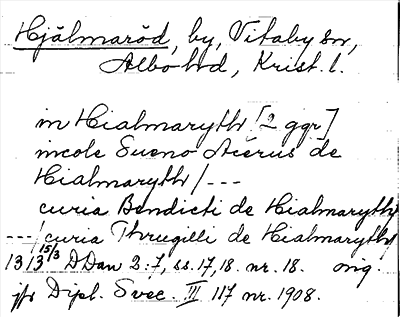 Hjälmaröd, by, Vitaby sn,
Albo hd, Krist. l.
in Hialmaryth [2 ggr]
incole Sueno Acerus de
Hialmaryth / ---
curia Bendicti de Hialmaryth
--- / curia Thrugilli de Hialmaryth
1313 15/3 DDan 2:7, ss. 17, 18. nr. 18. orig.
jfr Dipl. Svec. III 117 nr. 1908.